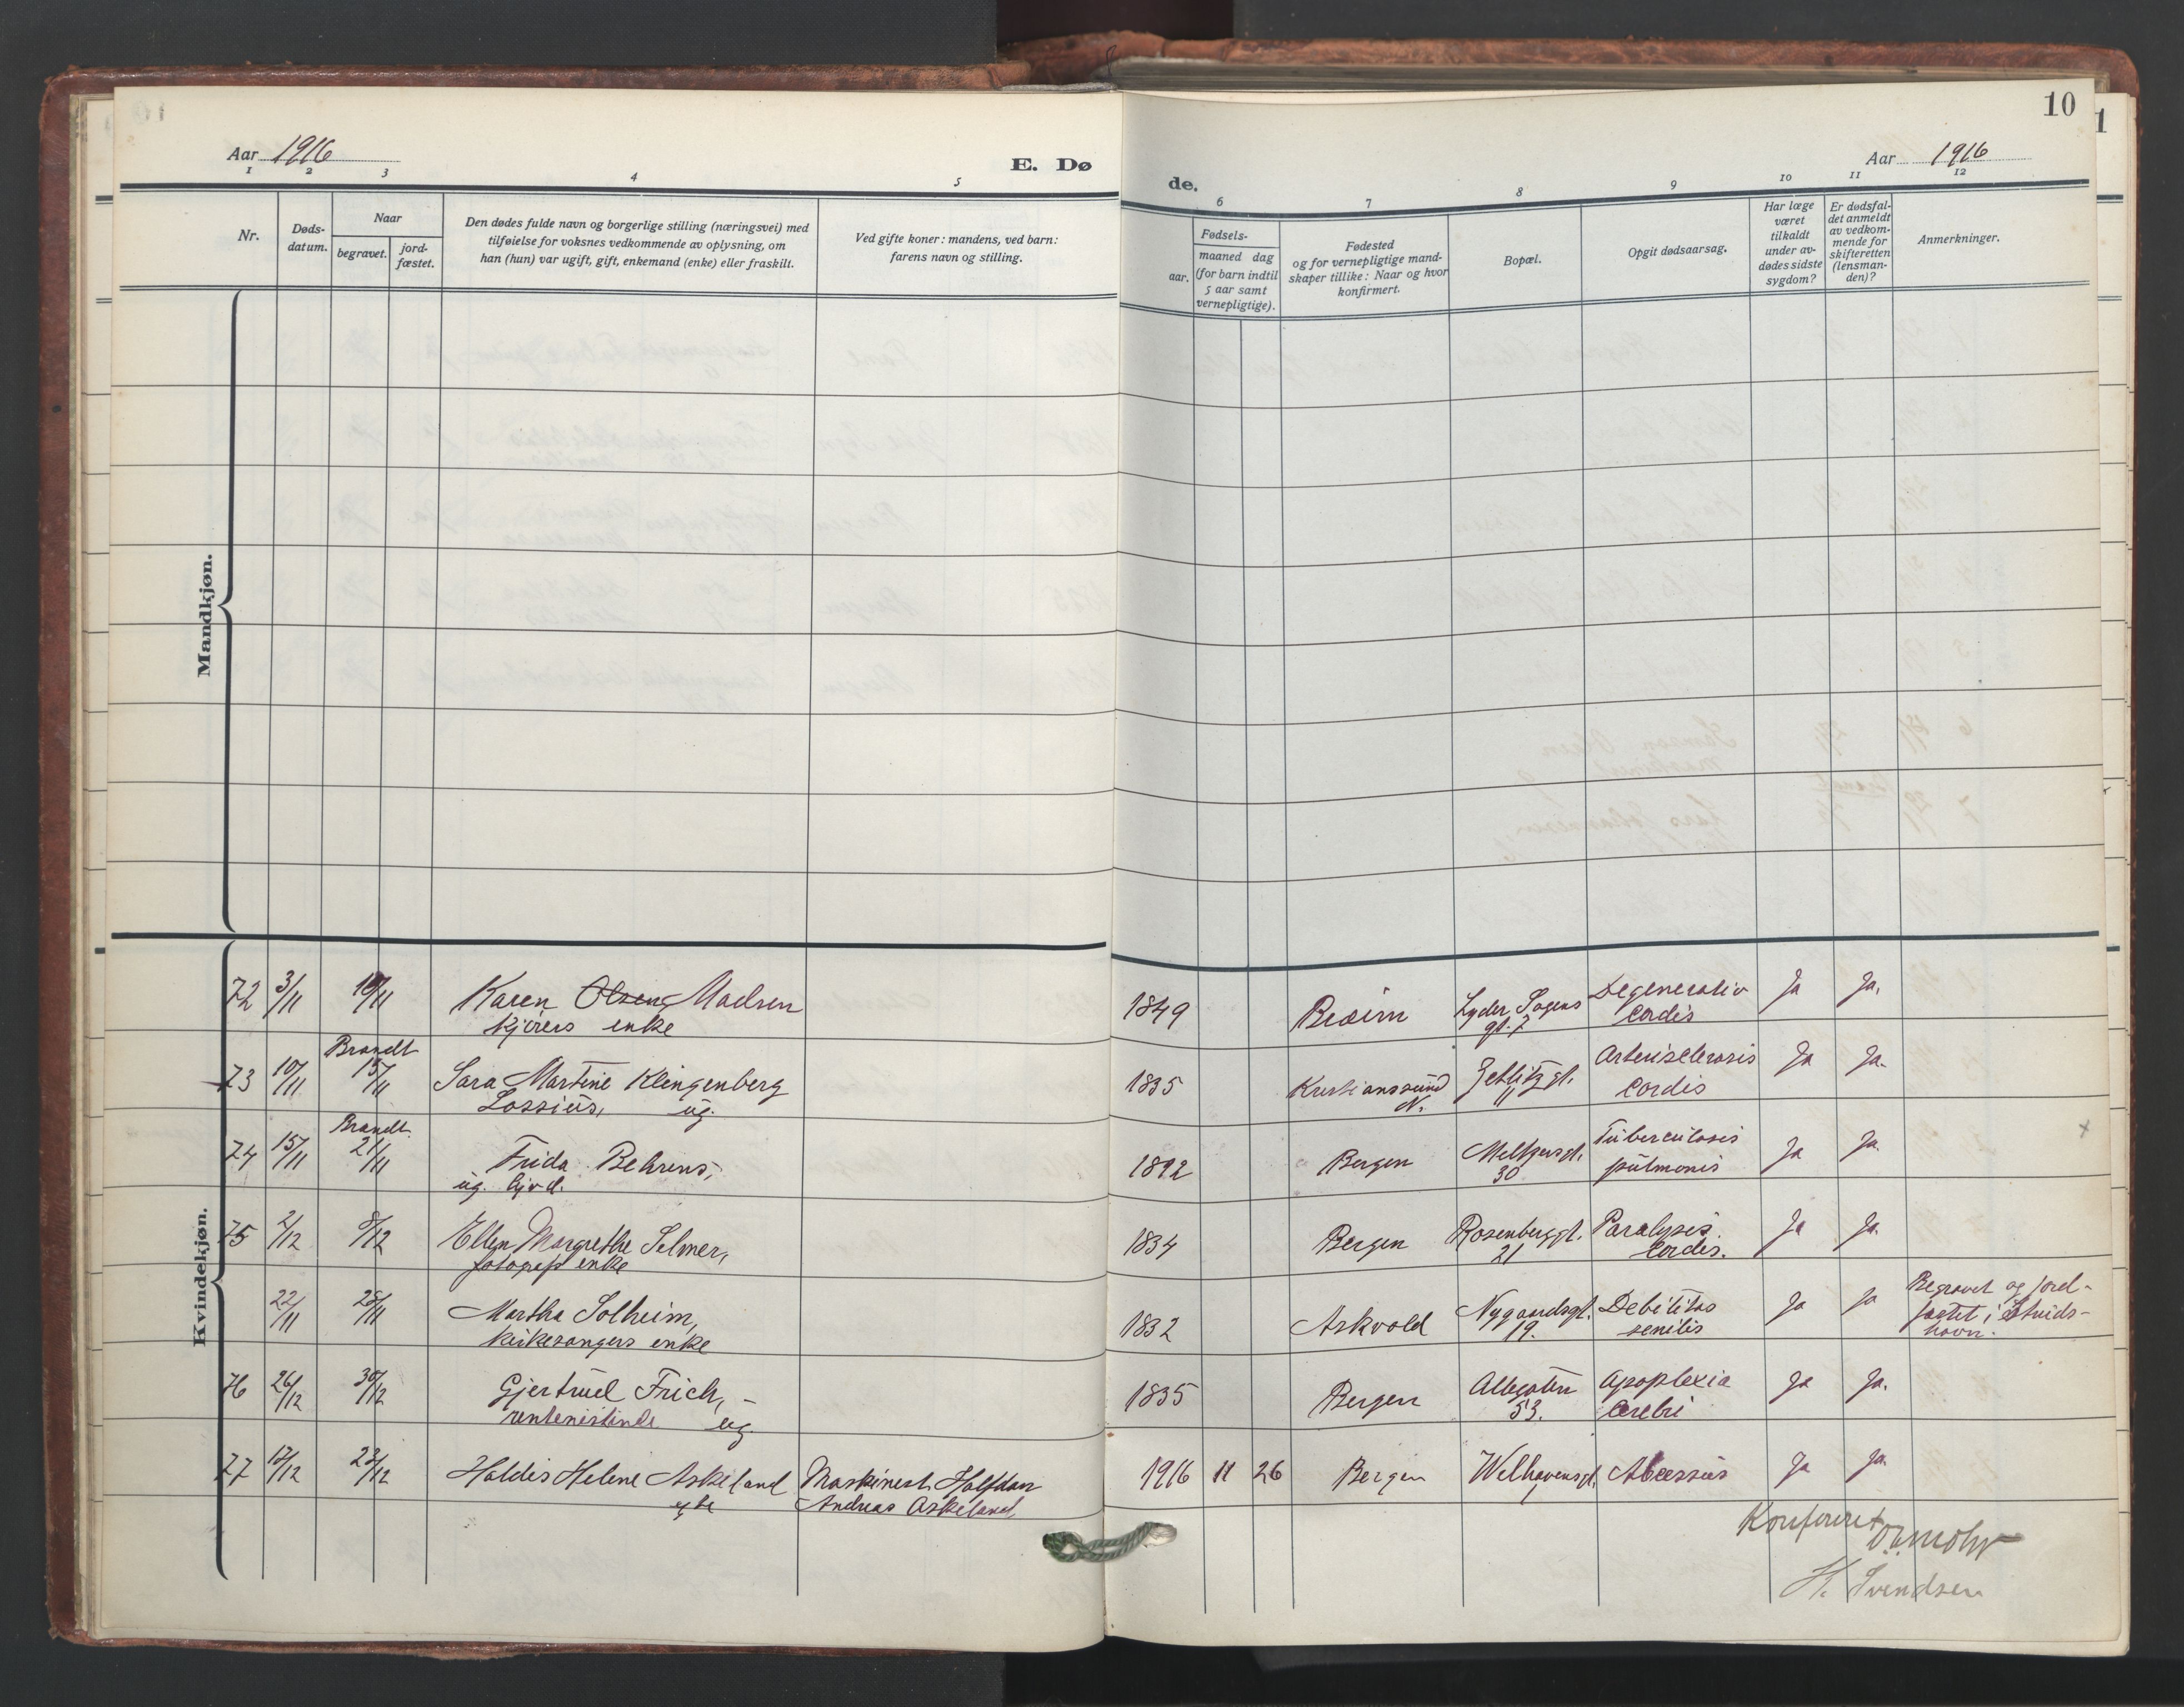 10
Aar 1916
E. Dø
de.
Aar 1916
1 2 3 4 5 6 7 8 9 10 11 12
Nr.
Døds-
datum.
Naar
begravet.
jord-
fæstet.
Den dødes fulde navn og borgerlige stilling (næringsvei) med
tilføielse for voksnes vedkommende av oplysning, om
han (hun) var ugift, gift, enkemand (enke) eller fraskilt.
Ved gifte koner: mandens, ved barn:
farens navn og stilling.
Fødsels-
aar.
maaned dag
(for barn indtil
5 aar samt
vernepligtige).
Fødested
og for vernepligtige mand-
skaper tillike: Naar og hvor
konfirmert.
Bopæl.
Opgit dødsaarsag.
Har læge
været
tilkaldt
under av-
dødes sidste
sygdom?
Er dødsfal-
det anmeldt
av vedkom-
mende for
skifteretten
(lensman-
den)?
Anmerkninger.
Mandkjøn.
Kvindekjøn.
72 3/11 10/11 Karen Olsen Madsen 1849 Lyder Sagens Degenerativ Ja Ja.
enke gt. 7 Cordis
Brandt
73 10/11 15/11 Sara Martine Klingenberg 1835 Kristianssund Zetlitzgt. Arteriosclerosis Ja Ja.
Lossius, ug. N. 11 Cordis
Brandt
74 15/11 21/11 Frida Behrens, 1892 Bergen Meltzersgt. Tuberculosis Ja Ja.
ug. 30 pulmonis
75 2/12 8/12 Ellen Margrethe Selmer, 1834 Bergen Rosenberggt. Paralysis Ja Ja.
fotograf enke 21 Cordis.
22/11 28/11 Martha Solheim, 1832 Askvold Nygaardsgt. Debilitas Ja Ja Begravet og jord-
kirkesangers enke 19. senilis fæstet i Eivinds-
havn.
76 26/12 30/12 Gjertrud Frich, 1835 Bergen Allegaten Apoplexia Ja Ja.
rentenistinde ug. 53. Cerebri
77 17/12 23/12 Haldis Helene Askeland Maskinest. Halfdan 1916 11 26 Bergen Welhavensgt. Abcessus Ja Ja.
Andreas Askeland
Konferert
H. Svendsen